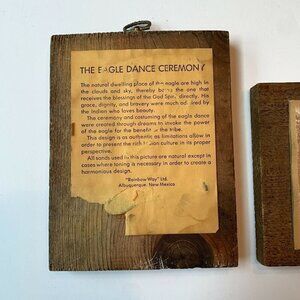 THE EAGLE DANCE CEREMONY
The natural dwelling place of the eagle are high in
the clouds and sky, thereby being the one that
receives the blessings of the God Spirit directly. His
grace, dignity, and bravery were much admired by
the Indian who loves beauty.
The ceremony and costuming of the eagle dance
were created through dreams to invoke the power
of the eagle for the benefit of the tribe.
This design is as authentic as limitations allow in
order to present the rich Indian culture in its proper
perspective.
All sands used in this picture are natural except in
cases where toning is necessary in order to create a
harmonious design.
"Rainbow Way" Ltd.
Albuquerque, New Mexico